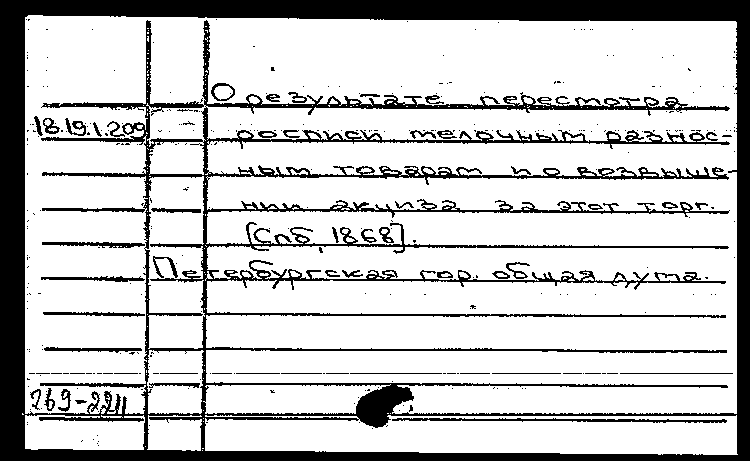 О результате пересмотра
18.19.1.209 росписи мелочным разнос-
ным товарам и о возвыше-
нии акциза за этот торг.
[Спб, 1868].
Петербургская гор. общая дума.
269-2211